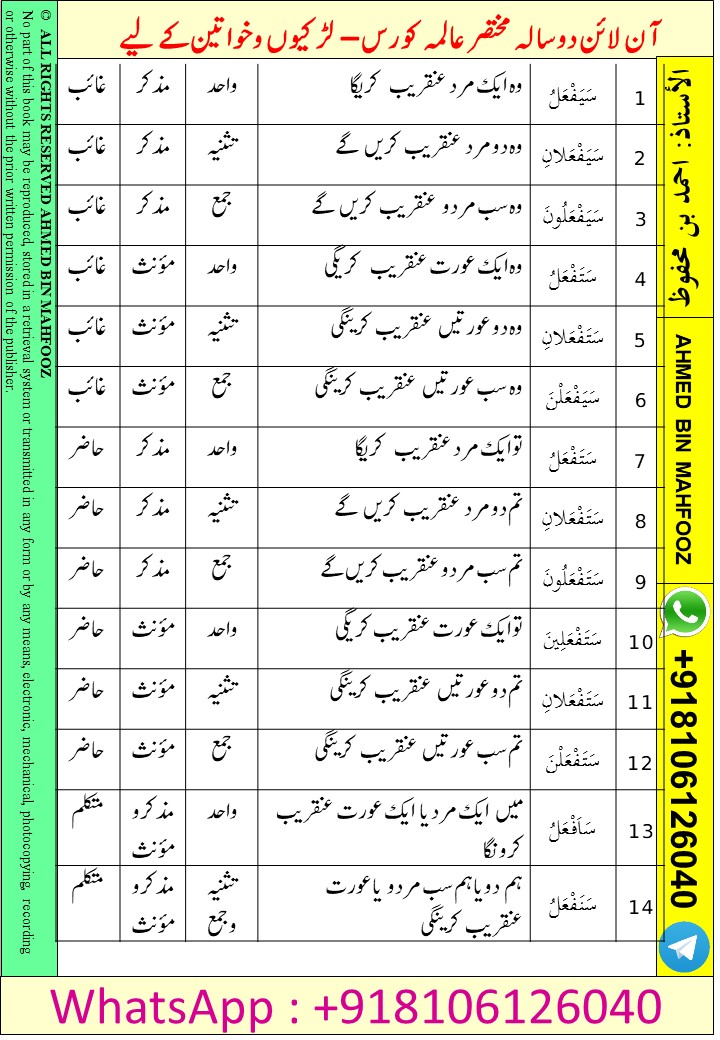 آن لائن دو سالہ مختصر عالمہ کورس – لڑکیوں و خواتین کے لیے
1 سَيَفْعَلُ وہ ایک مرد عنقریب کریگا واحد مذکر غائب
2 سَيَفْعَلَانِ وہ دو مرد عنقریب کریں گے تثنیہ مذکر غائب
3 سَيَفْعَلُونَ وہ سب مردو عنقریب کریں گے جمع مذکر غائب
4 سَتَفْعَلُ وہ ایک عورت عنقریب کریگی واحد مؤنث غائب
5 سَتَفْعَلَانِ وہ دو عورتیں عنقریب کرینگی تثنیہ مؤنث غائب
6 سَيَفْعَلْنَ وہ سب عورتیں عنقریب کرینگی جمع مؤنث غائب
7 سَتَفْعَلُ تو ایک مرد عنقریب کریگا واحد مذکر حاضر
8 سَتَفْعَلَانِ تم دو مرد عنقریب کریں گے تثنیہ مذکر حاضر
9 سَتَفْعَلُونَ تم سب مردو عنقریب کریں گے جمع مذکر حاضر
10 سَتَفْعَلِينَ تو ایک عورت عنقریب کریگی واحد مؤنث حاضر
11 سَتَفْعَلَانِ تم دو عورتیں عنقریب کرینگی تثنیہ مؤنث حاضر
12 سَتَفْعَلْنَ تم سب عورتیں عنقریب کرینگی جمع مؤنث حاضر
13 سَاَفْعَلُ میں ایک مرد یا ایک عورت عنقریب واحد مذکر و متکلم
کرونگا مؤنث
14 سَنَفْعَلُ ہم دو یا ہم سب مردو یا عورت تثنیہ مذکر و متکلم
عنقریب کرینگی و جمع مؤنث
الأستاذ: احمد بن محفوظ
AHMED BIN MAHFOOZ
+918106126040
© ALL RIGHTS RESERVED AHMED BIN MAHFOOZ
No part of this book may be reproduced, stored in a retrieval system or transmitted in any form or by any means, electronic, mechanical, photocopying, recording
or otherwise without the prior written permission of the publisher.
WhatsApp : +918106126040